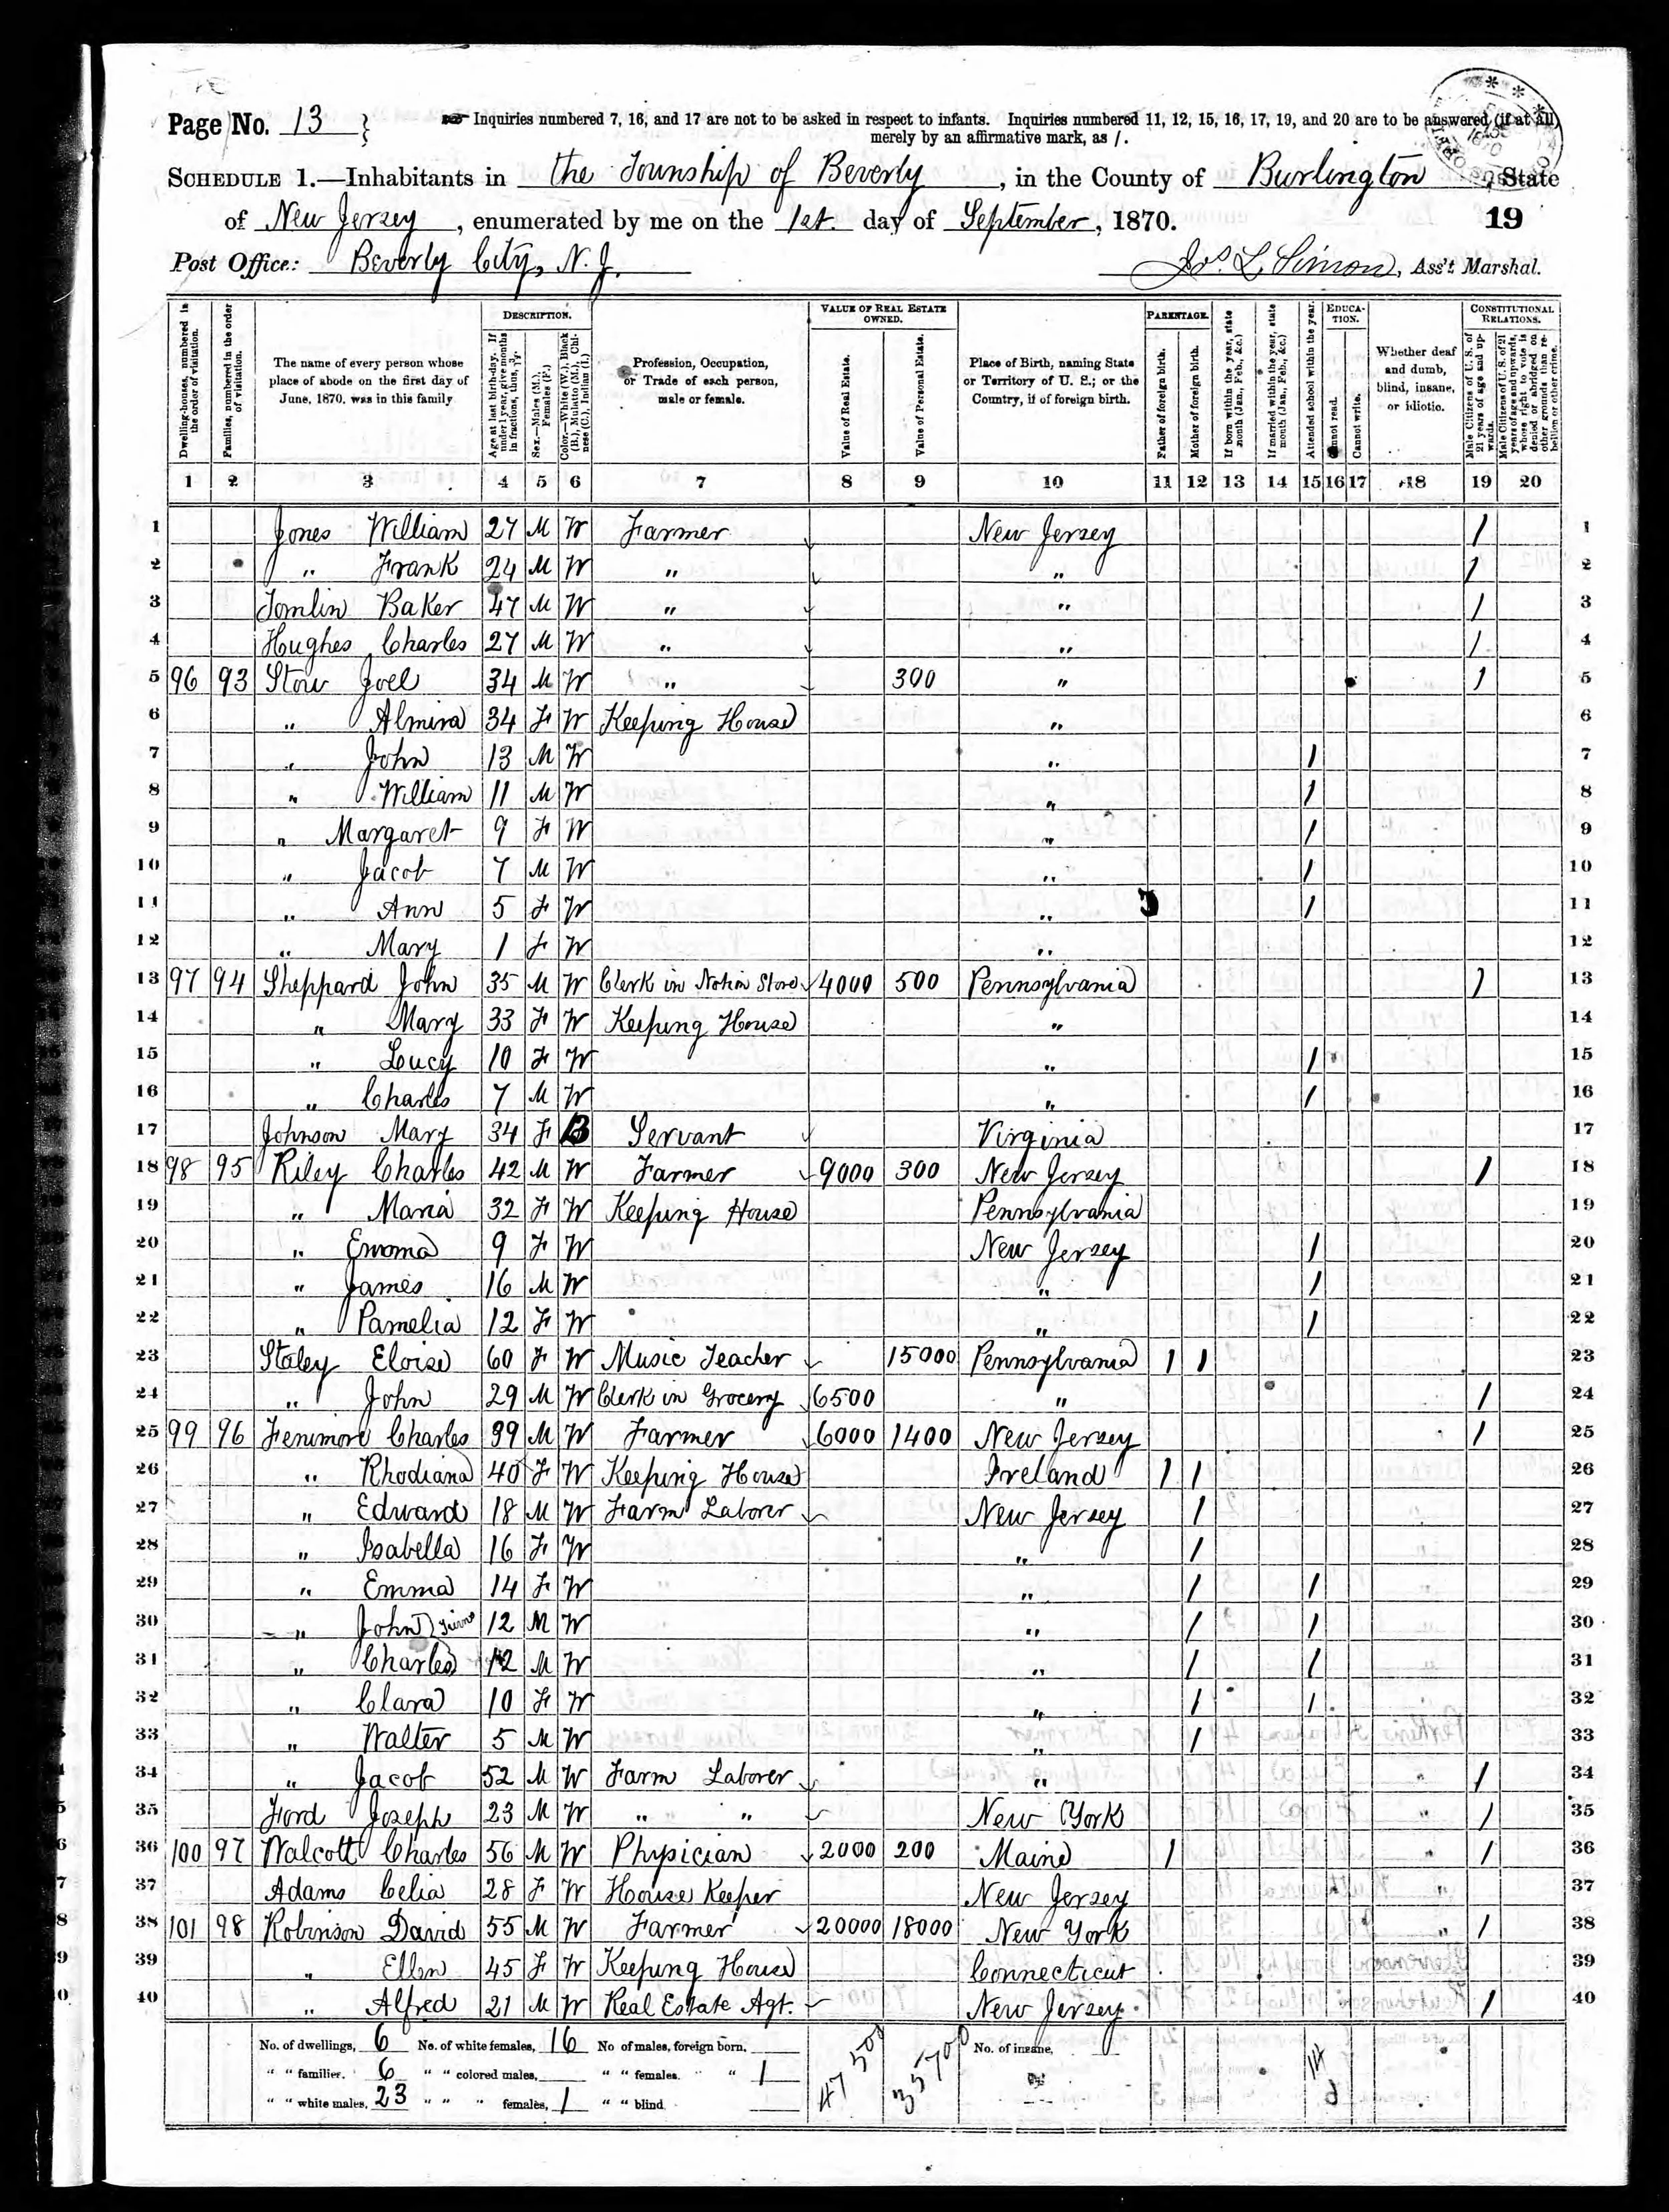 Page No. 13 }
Inquiries numbered 7, 16, and 17 are not to be asked in respect to infants. Inquiries numbered 11, 12, 15, 16, 17, 19, and 20 are to be answered (if at all)
merely by an affirmative mark, as /.
SCHEDULE 1.—Inhabitants in the Township of Beverly, in the County of Burlington, State
of New Jersey, enumerated by me on the 1st. day of September, 1870. 19
Post Office: Beverly City, N. J. Jos. L. Simon, Ass't Marshal.
Dwelling-houses, numbered in the order of visitation.
Families, numbered in the order of visitation.
The name of every person whose place of abode on the first day of June, 1870, was in this family
DESCRIPTION.
Age at last birth-day. If under 1 year, give months in fractions, thus, 3/12.
Sex.—Males (M.), Females (F.)
Color.—White (W.), Black (B.), Mulatto (M.), Chinese (C.), Indian (I.)
Profession, Occupation, or Trade of each person, male or female.
VALUE OF REAL ESTATE OWNED.
Value of Real Estate.
Value of Personal Estate.
Place of Birth, naming State or Territory of U. S.; or the Country, if of foreign birth.
PARENTAGE.
Father of foreign birth.
Mother of foreign birth.
If born within the year, state month (Jan., Feb., &c.)
If married within the year, state month (Jan., Feb., &c.)
Attended school within the year.
EDUCATION.
Cannot read.
Cannot write.
Whether deaf and dumb, blind, insane, or idiotic.
CONSTITUTIONAL RELATIONS.
Male Citizens of U. S. of 21 years of age and upwards.
Male Citizens of U. S. of 21 years of age and upwards, whose right to vote is denied or abridged on other grounds than rebellion or other crime.
1 2 3 4 5 6 7 8 9 10 11 12 13 14 15 16 17 18 19 20
1 Jones William 27 M W Farmer New Jersey / 1
2 " Frank 24 M W " " / 2
3 Tomlin Baker 47 M W " " / 3
4 Hughes Charles 27 M W " " / 4
5 96 93 Stow Joel 34 M W " 300 " / 5
6 " Almira 34 F W Keeping House " 6
7 " John 13 M W " / 7
8 " William 11 M W " / 8
9 " Margaret 9 F W " / 9
10 " Jacob 7 M W " / 10
11 " Ann 5 F W " / 11
12 " Mary 1 F W " 12
13 97 94 Sheppard John 35 M W Clerk in Notion Store 4000 500 Pennsylvania / 13
14 " Mary 33 F W Keeping House " 14
15 " Lucy 10 F W " / 15
16 " Charles 7 M W " / 16
17 Johnson Mary 34 F B Servant Virginia 17
18 98 95 Riley Charles 42 M W Farmer 9000 300 New Jersey / 18
19 " Maria 32 F W Keeping House Pennsylvania 19
20 " Emma 9 F W New Jersey / 20
21 " James 16 M W " / 21
22 " Pamelia 12 F W " / 22
23 Staley Eloise 60 F W Music Teacher 15000 Pennsylvania / / 23
24 " John 29 M W Clerk in Grocery 6500 " / 24
25 99 96 Fenimore Charles 39 M W Farmer 6000 1400 New Jersey / 25
26 " Rhodiana 40 F W Keeping House Ireland / / 26
27 " Edward 18 M W Farm Laborer New Jersey / 27
28 " Isabella 16 F W " / 28
29 " Emma 14 F W " / / 29
30 " John } Twins 12 M W " / / 30
31 " Charles 12 M W " / / 31
32 " Clara 10 F W " / / 32
33 " Walter 5 M W " / 33
34 " Jacob 52 M W Farm Laborer " / 34
35 Ford Joseph 23 M W " " New York / 35
36 100 97 Walcott Charles 56 M W Physician 2000 200 Maine / / 36
37 Adams Celia 28 F W House Keeper New Jersey 37
38 101 98 Robinson David 55 M W Farmer 20000 18000 New York / 38
39 " Ellen 45 F W Keeping House Connecticut 39
40 " Alfred 21 M W Real Estate Agt. New Jersey / 40
No. of dwellings, 6 No. of white females, 16 No of males, foreign born, 47500 35700 No. of insane,
" " families. 6 " " colored males, " " females. " " 1 14
" " white males, 23 " " " females, 1 " " blind.